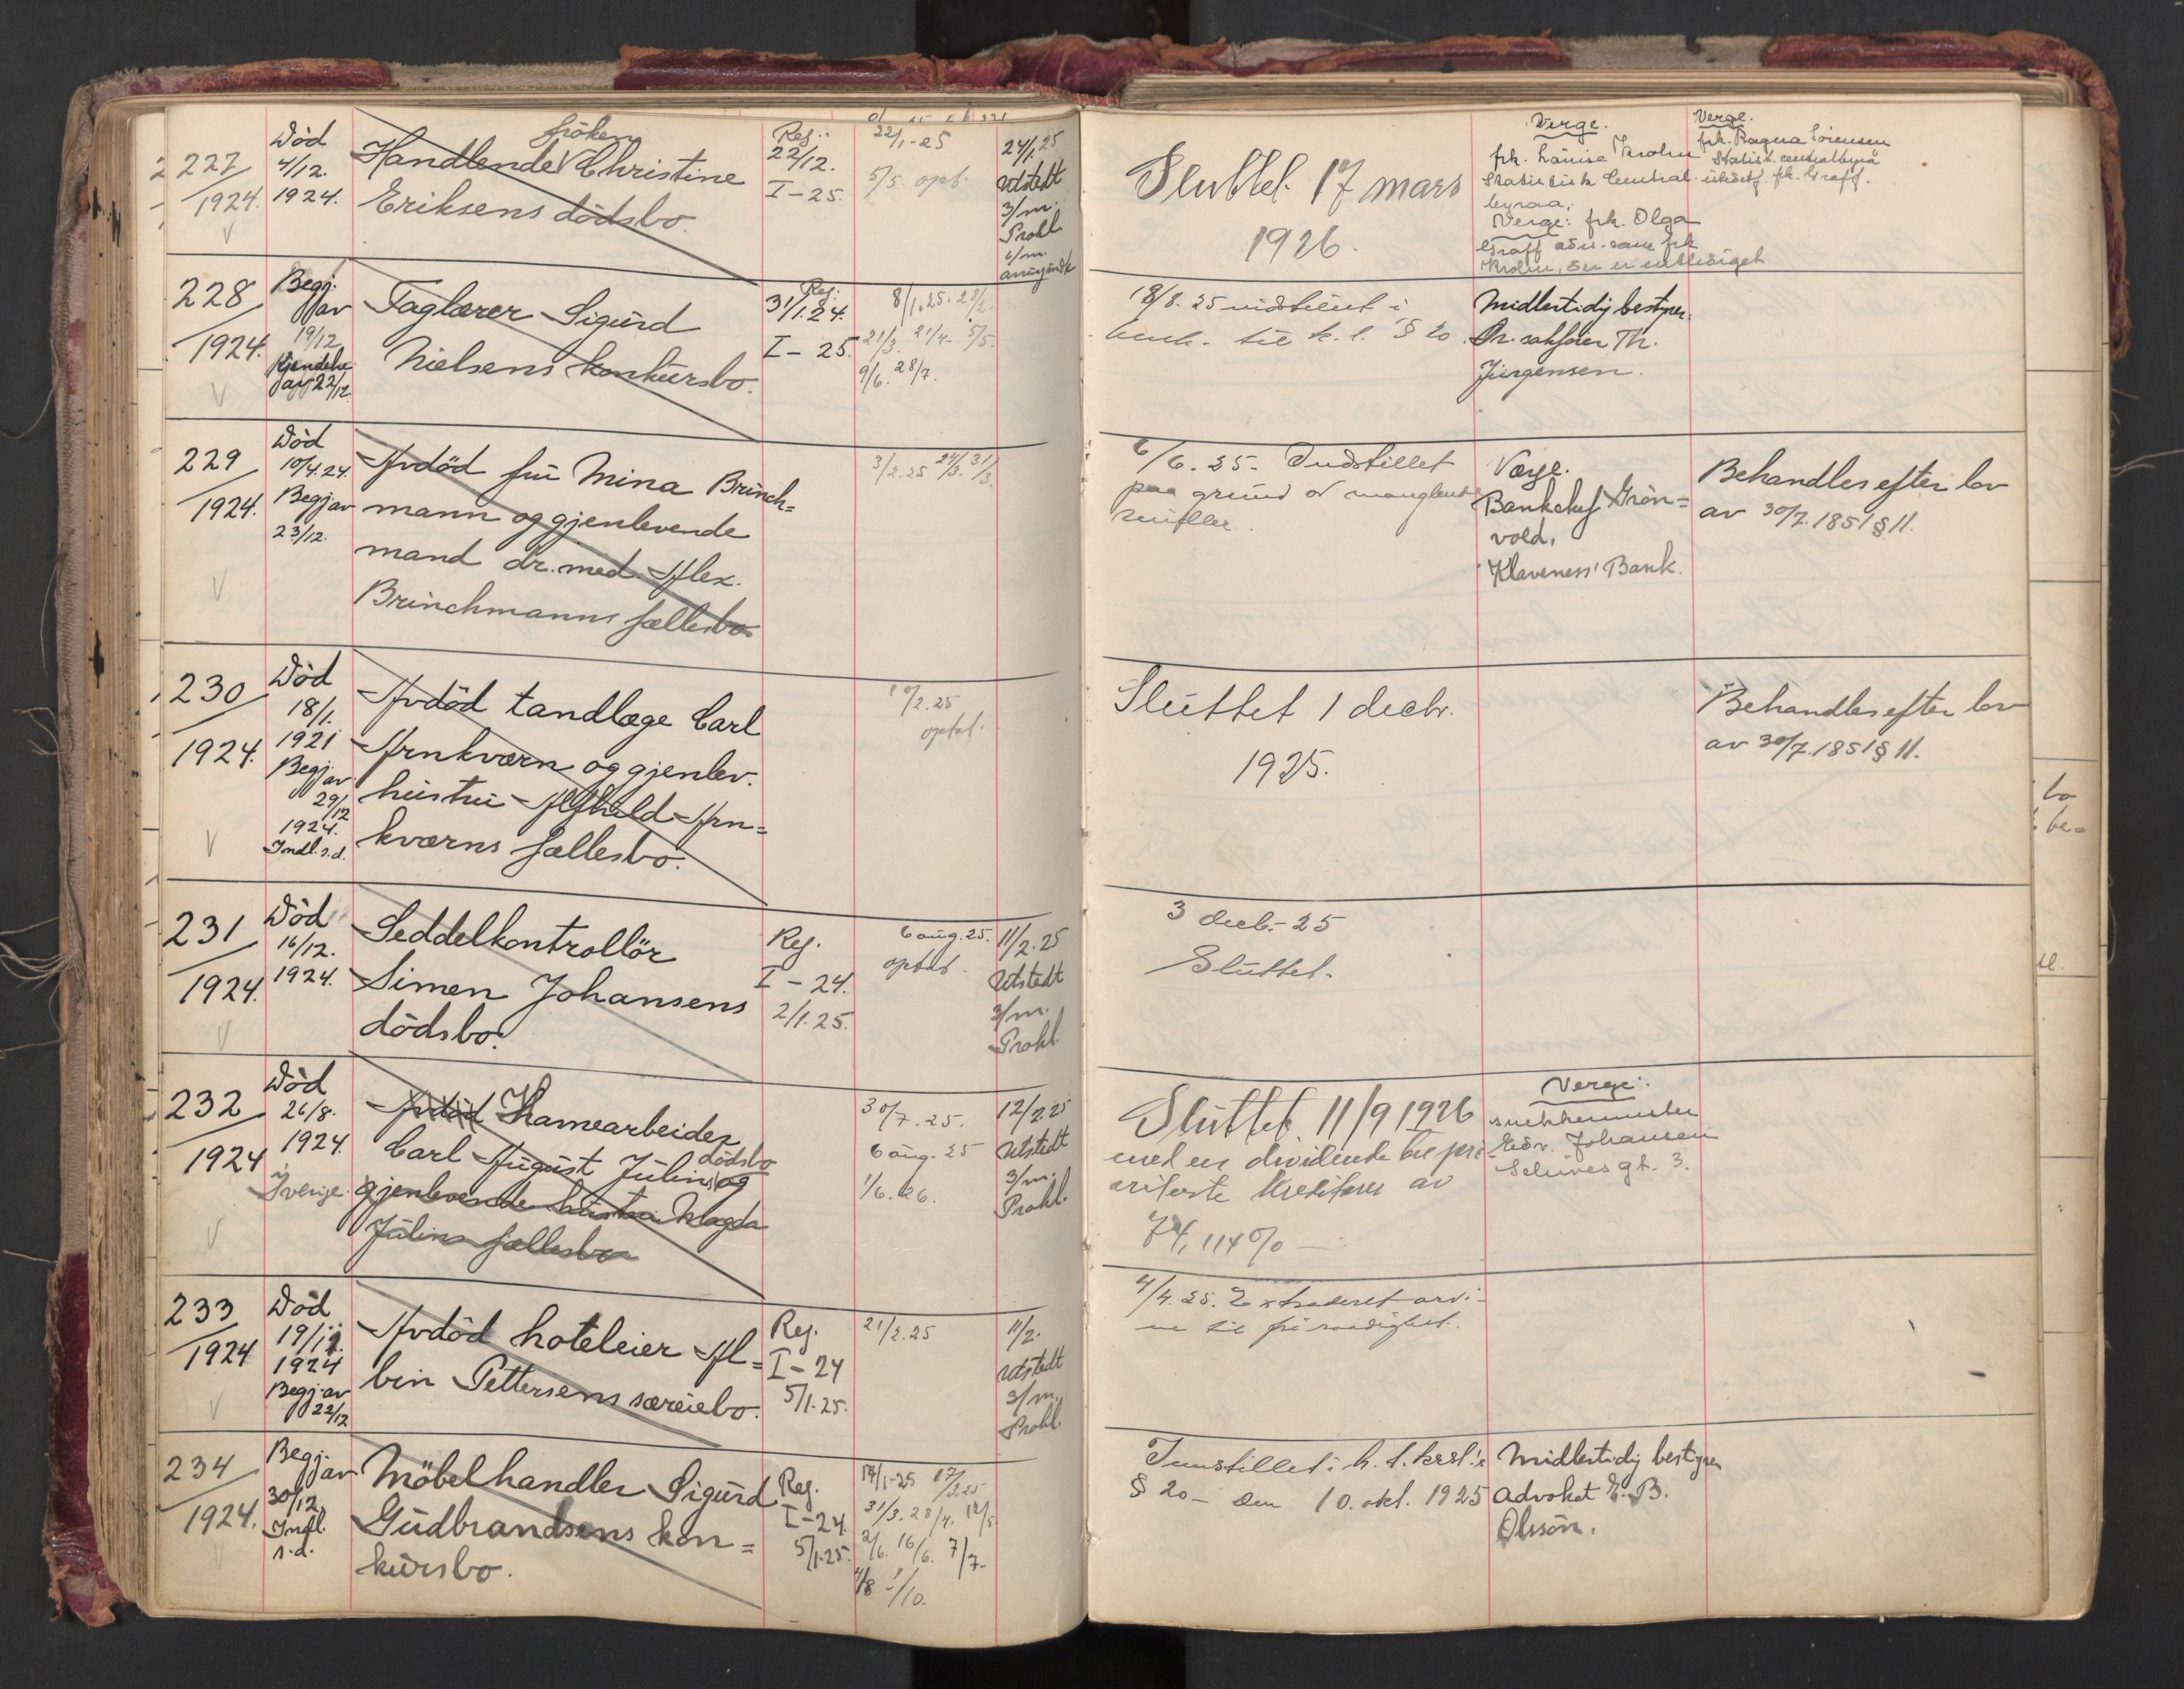 227
1924.
Död
4/12.
1924.
Handlende fröken Christine
Eriksens dödsbo.
Reg.:
22/12.
I-25.
22/1-25
5/5. opt.
24/1.25
Utstedt
3/m.
Prokl.
Sluttet 17 mars
1926.
Verge.
frk. Louise Krohn
Statistisk Central-
byraa.
Verge: frk. Olga
Graff adr. som frk
Krohn, der er entlediget
Verge.
frk. Ragna Sörensen
Statist. centralbyrå
frk. Graff.
228
1924.
Begj.
av
19/12
Kjendelse
av 22/12.
Faglærer Sigurd
Nielsens konkursbo.
Reg.
31/1.24.
I-25.
8/1.25. 28/2.
21/3. 21/4. 5/5.
9/6. 28/7.
18/8.25 indstillet i
henh. til k.l. § 20.
Midlertidig bestyrer.
Or. sakförer Th.
Jürgensen.
229
1924.
Död
10/4.24.
Begj av
23/12.
Avdöd fru Mina Brinch=
mann og gjenlevende
mand dr. med. Alex.
Brinchmanns fællesbo
3/2.25 24/3. 31/3.
6/6.25. Indstillet
paa grund av manglende
midler.
Verge.
Bankchef Grön=
vold.
Klaveness' Bank.
Behandles efter lov
av 30/7.1851 § 11.
230
1924.
Död
18/1.
1921
Begj. av
29/12
1924.
Indl. s.d.
Avdöd tandlæge Carl
Arnkværn og gjenlev.
hustru Alfhild Arn=
kværns fællesbo.
10/2.25
optat.
Sluttet 1 decbr.
1925.
Behandles efter lov
av 30/7.1851 § 11.
231
1924.
Död
16/12.
1924.
Seddelkontrollör
Simen Johansens
dödsbo.
Reg.
I-24.
2/1.25.
6 aug. 25.
optat.
11/2.25
Utstedt
3/m.
Prokl.
3 decb.-25
Sluttet.
232
1924
Död
26/8.
1924.
i
Sverige.
Avdöd Havnearbeider
Carl August Julins dödsbo og
gjenlevende hustru Magda
Julins fællesbo
30/7.25.
6 aug. 25
1/6.26.
12/2.25
Utstedt
3/m.
Prokl.
Sluttet. 11/9 1926
med en dividende til pri-
oriterte kreditorer av
74,114%
Verge:
snekkermester
Edv. Johansen
Schives gt. 3.
233
1924
Död
19/11.
1924
Begj. av
22/12
Avdöd hoteleier Al=
bin Pettersens særeiebo.
Reg.
I-24
5/1.25.
21/2.25
11/2.
Utstedt
3/m.
Prokl.
4/4.25. Extraderet arvi-
ne til fri raadighet.
234
1924.
Begj av
30/12.
Indl.
s.d.
Möbelhandler Sigurd
Gudbrandsens kon=
kursbo.
Reg.
I-24.
5/1.25.
14/1-25 17/3.25
31/3. 28/4. 12/5
2/6. 16/6. 7/7.
4/8 1/10.
Innstillet i h. t. krsl.'s
§ 20- den 10. okt. 1925
Midlertidig bestyrer
Advokat E. B.
Olssön.